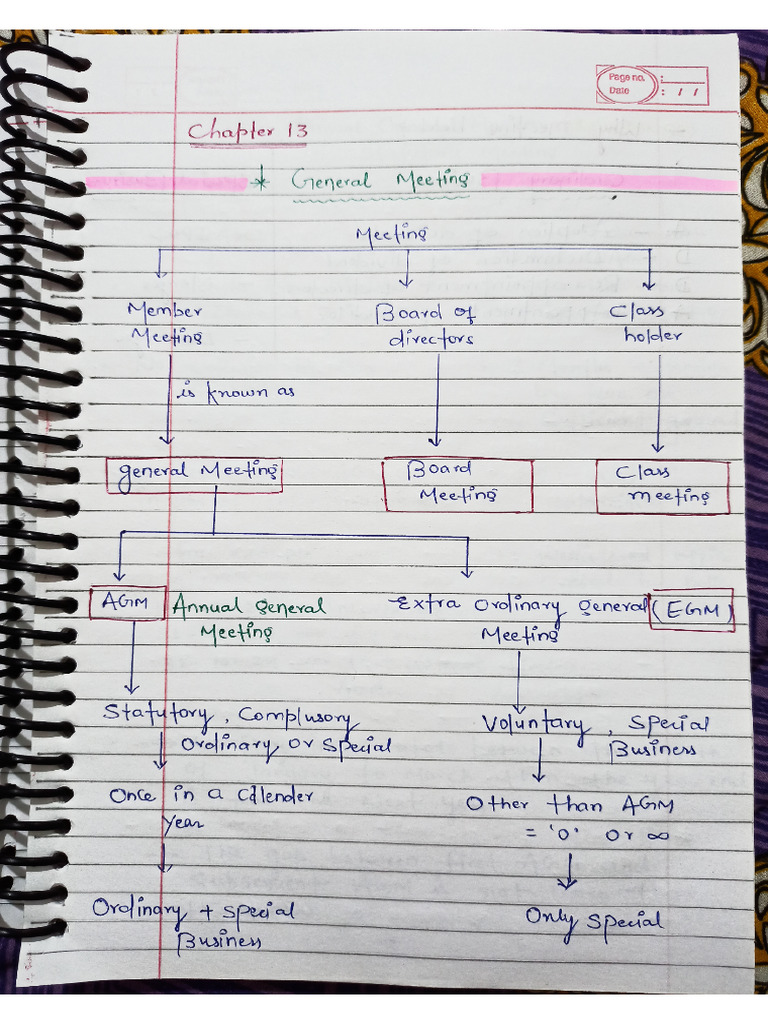 Page no. :
Date : / /
Chapter 13
* General Meeting
Meeting
Member Meeting
Board of directors
Class holder
is known as
general Meeting
Board Meeting
Class meeting
AGM Annual general Meeting
Extra Ordinary general Meeting (EGM)
Statutory, Complusory
Ordinary or Special
Voluntary, Special
Business
Once in a Calender
Year
Other than AGM
= 'O' or ∞
Ordinary + Special
Business
Only Special